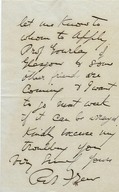 let me know to
whom to apply
Prof Gourlay of
Glasgow & some
other friend are
coming & I want
to go next week
if it can be arranged
Kindly excuse my
troubling you
Very Sincerely Yours